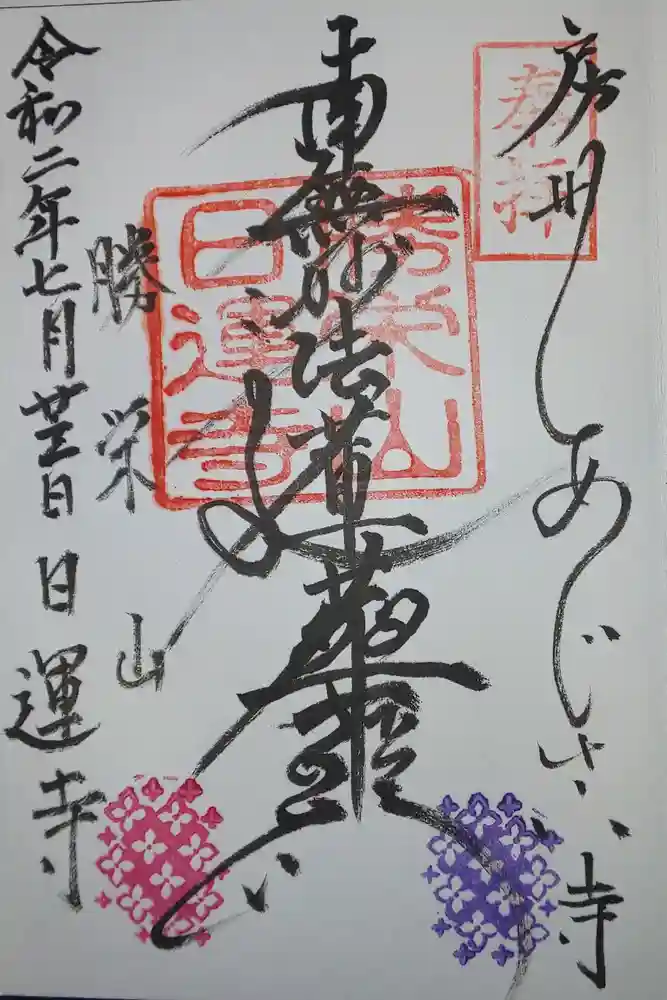 奉拝
房州あじさい寺
南無妙法蓮華経
勝栄山
日運寺
勝栄山
令和二年七月廿三日 日運寺